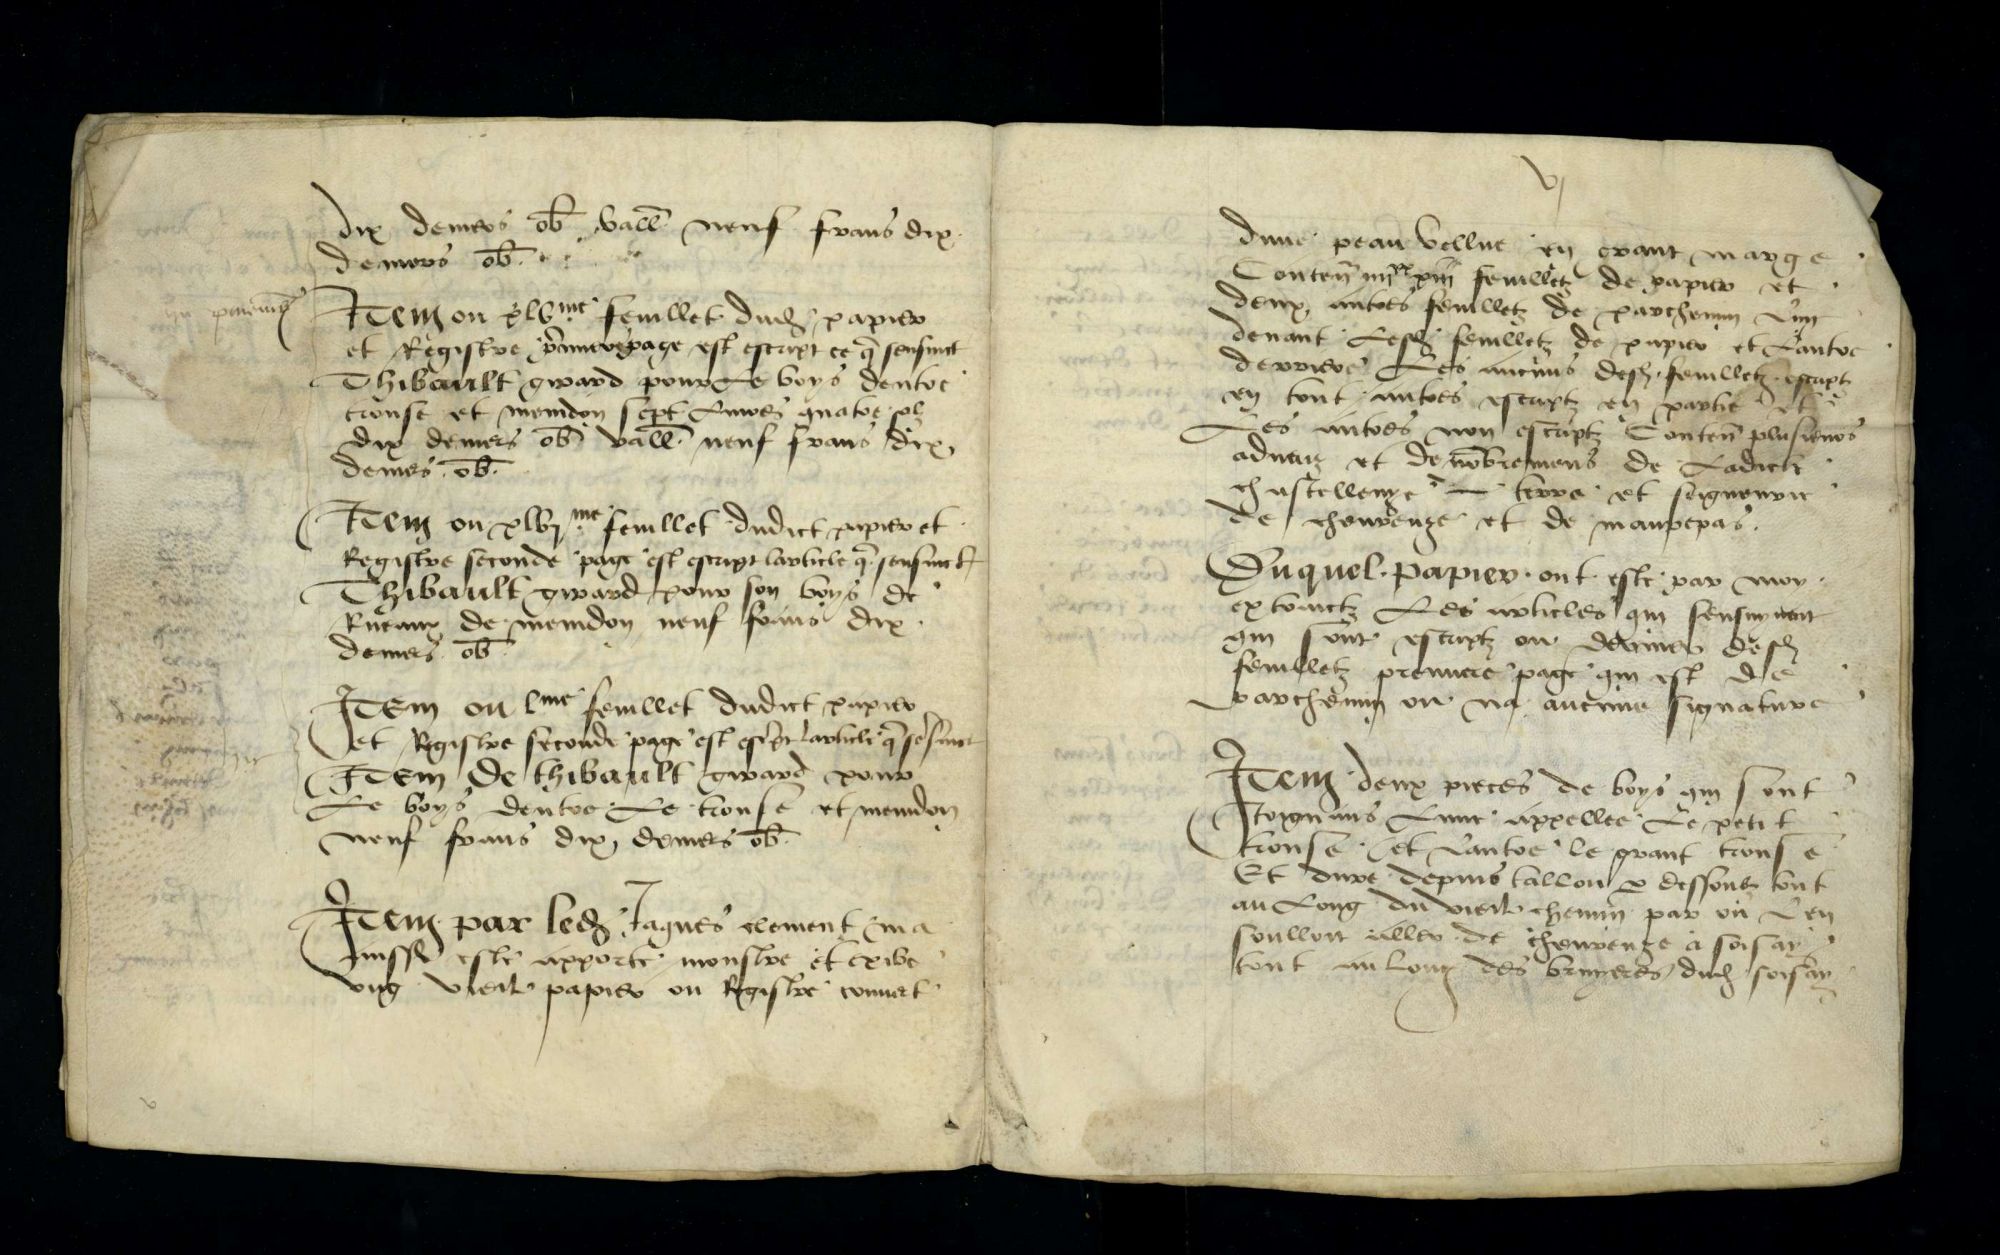 dix deniers ob. vall. neuf frans dix
deniers ob.
Item ou xlvme feuillet dud. papier
et Registre premiere page est escript ce q. sensuict
Thibault girard pour le boys dentre
trouse et meudon sept livres quatre s.
dix deniers ob. vall. neuf frans dix
deniers ob.
Item ou xlvjme feuillet dudict papier et
Registre seconde page est escript larticle q. sensuict
Thibault girard pour son boys de
de meudon neuf frans dix
deniers ob.
Item ou lme feuillet dudict papier
et Registre seconde page est escript larticle q. sensuict
Item de thibault girard pour
le boys dentre le trouse et meudon
neuf frans dix deniers ob.
Item par led. Jaques clement ma
aussi este apporte monstre et exibe
ung vieil papier ou Registre couvert
vj
dune peau vellue en grant marge
Conten. iiijxx xiij feuilletz de papier et
deux autres feuilletz de parchemin lun
devant lesd. feuilletz de papier et lautre
derriere les aucuns desd. feuilletz escriptz
en tout autres escriptz en partie et
les autres non escriptz Conten. plusieurs
adveuz et denombremens de ladicte
chastellenye terre et seigneurie
de chevreuze et de maurepas.
Duquel papier ont este par moy
extraictz les articles qui sensuyvent
qui sont escriptz ou dernier desd.
feuilletz premiere page qui est de
parchemin ou na aucune signature
Item deux pieces de boys qui sont
Joignans lune appellee le petit
trouse et lautre le grant trouse
Et dure depuis tallou p dessoubz tout
au long du vieil chemin par ou len
soulloit aller de chevreuze a soisay
tout au long des bruyeres dud. soisay